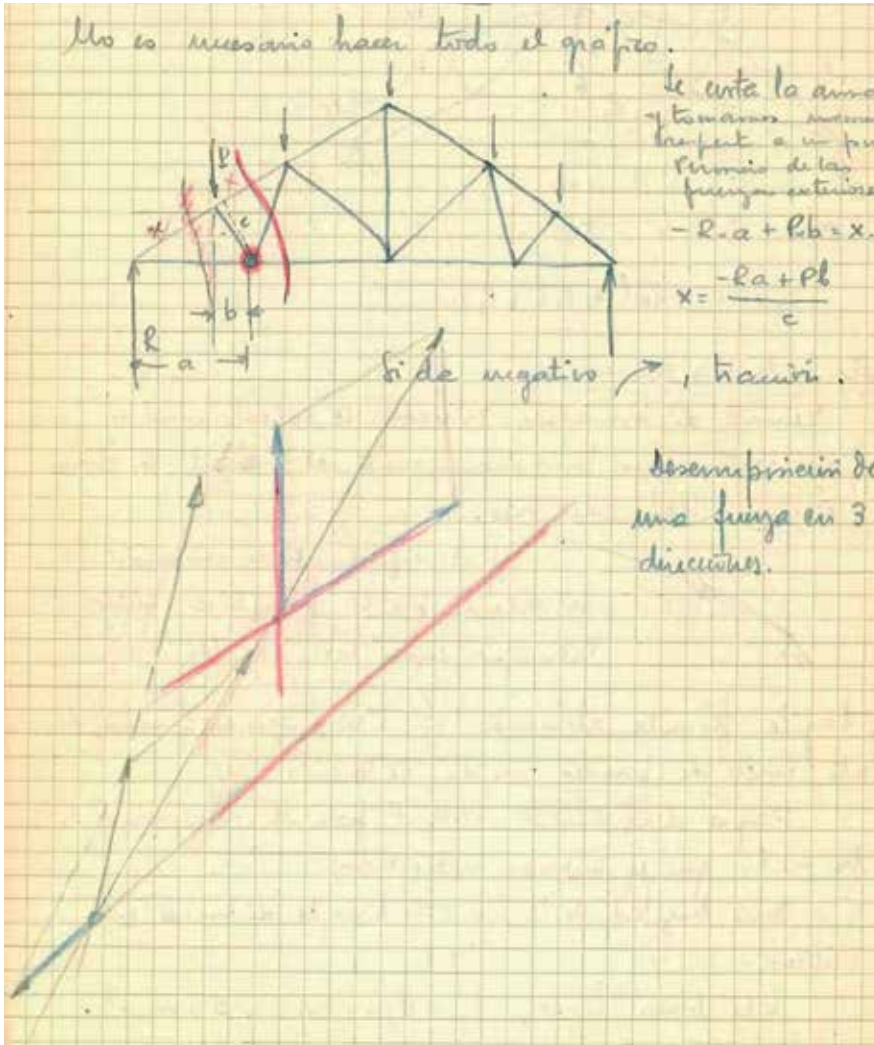 No es necesario hacer todo el gráfico.
Se corta la arma
y tomamos mome
respect a un pu
de las
fuerzas exteriores
- R.a + P.b = x.
x = -Ra + Pb
c
P
x
x
c
b
R
a
Si da negativo , tracción.
Descomposición de
una fuerza en 3
direcciones.